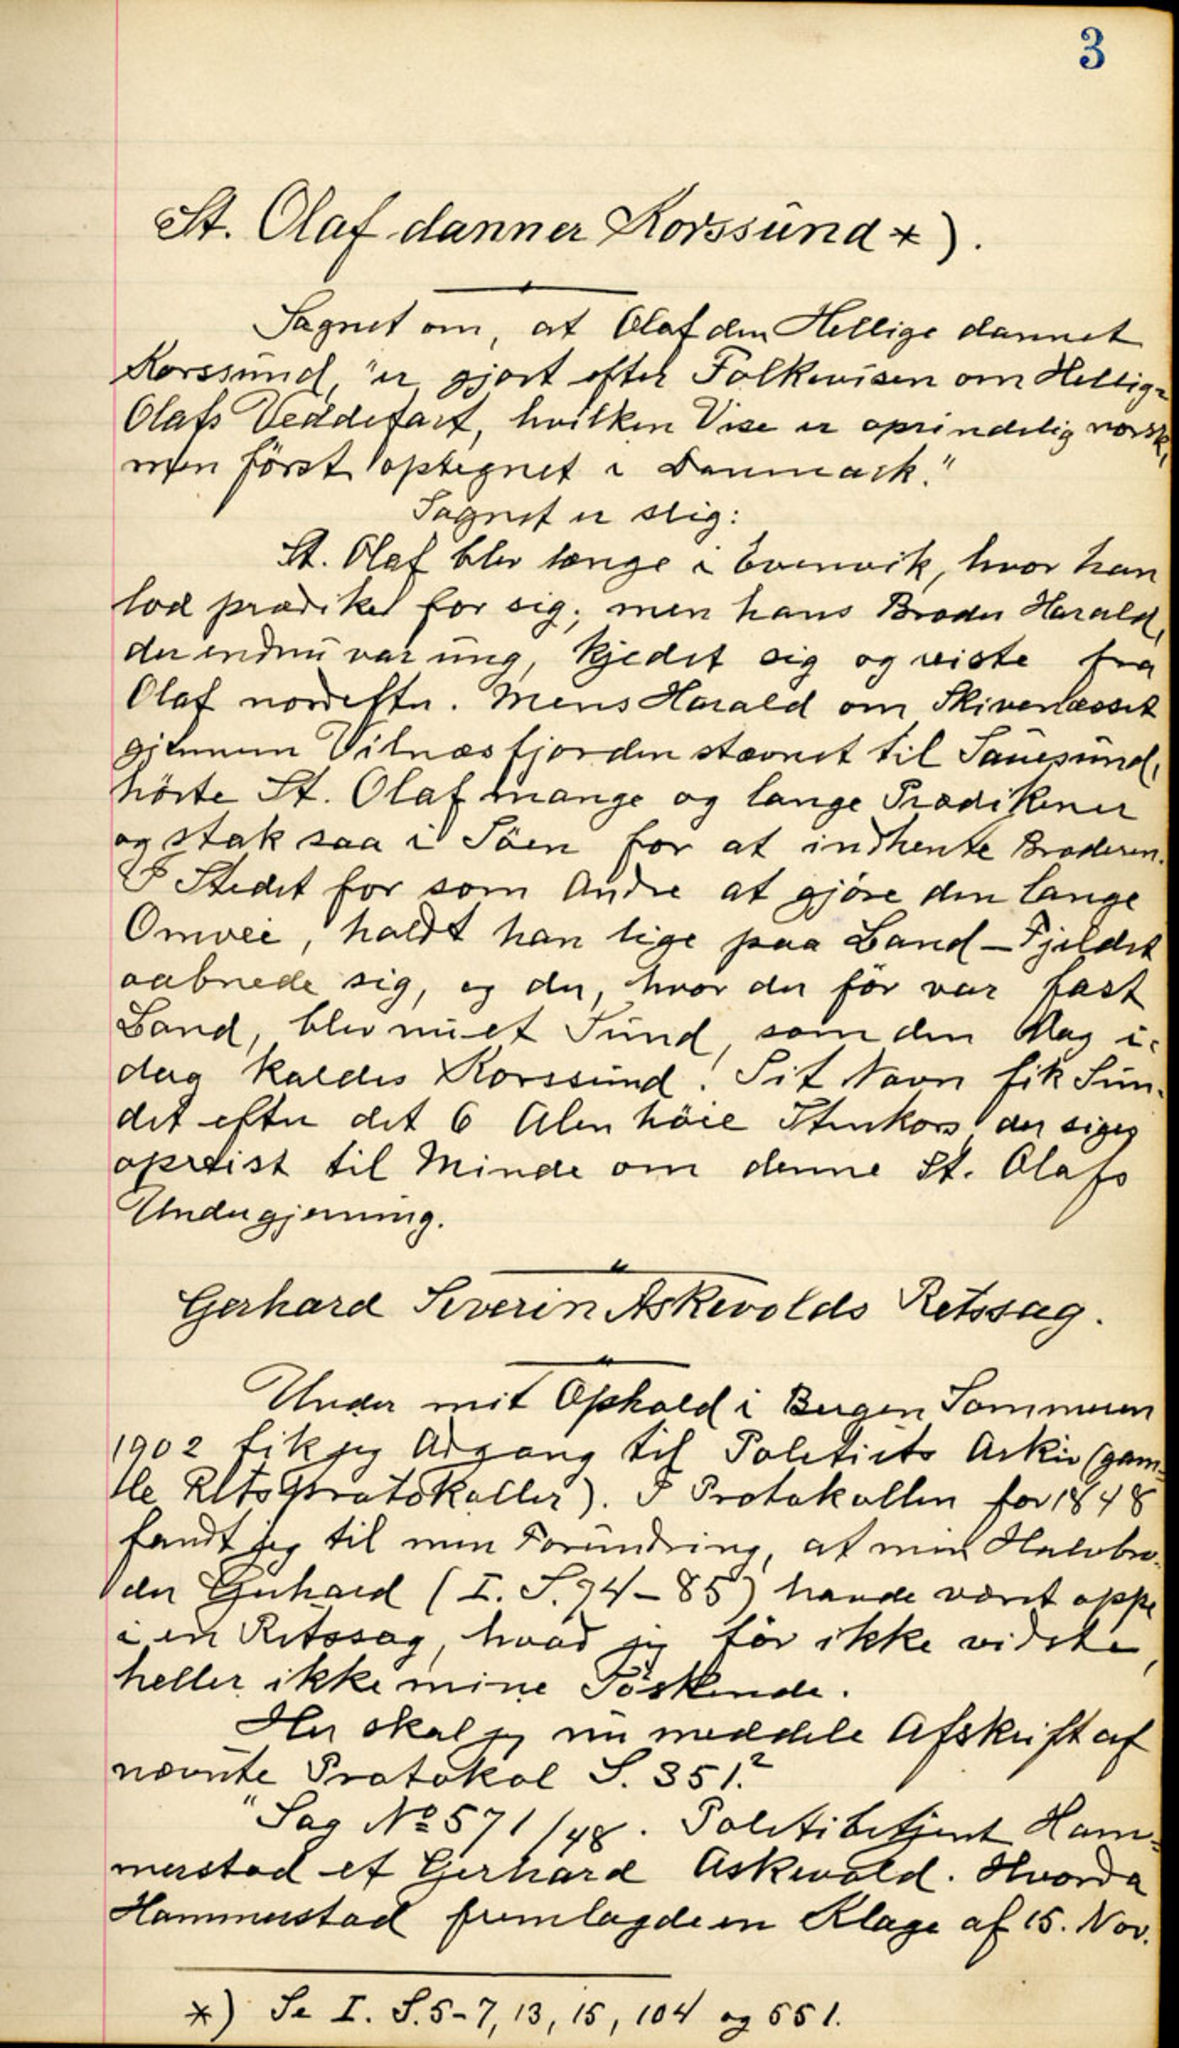 3
St. Olaf danner Korssund *).
Sagnet om, at Olaf den Hellige dannet
Korssund, "er gjort efter Folkevisen om Hellig-
Olafs Veddefart, hvilken Vise er oprindelig norsk,
men först optegnet i Danmark."
Sagnet er slig:
St. Olaf blev længe i Evenvik, hvor han
lod prædike for sig; men hans Broder Harald,
der endnu var ung, kjedet sig og reiste fra
Olaf nordefter. Mens Harald om Skivenlæsset
gjennem Vilnæsfjorden stævnet til Sauesund,
hörte St. Olaf mange og lange Prædikener
og stak saa i Söen for at indhente Broderen.
I Stedet for som Andre at gjöre den lange
Omvei, holdt han lige paa Land – Fjeldet
aabnede sig, og der, hvor der för var fast
Land, blev nu et Sund, som den Dag i-
dag kaldes Korssund. Sit Navn fik Sun-
det efter det 6 Alen höie Stenkors, der siges
opreist til Minde om denne St. Olafs
Undergjerning.
Gerhard Severin Askevolds Retssag.
Under mit Ophold i Bergen Sommeren
1902 fik jeg Adgang til Politiets Arkiv (gam-
le Retsprotokoller). I Protokollen for 1848
fandt jeg til min Forundring, at min Halvbro-
der Gerhard (I. S. 74–85) havde været oppe
i en Retssag, hvad jeg för ikke vidste,
heller ikke mine Söskende.
Her skal jeg nu meddele Afskrift af
nævnte Protokol S. 351.²
"Sag No 571/48. Politibetjent Ham-
merstad et Gerhard Askevold. Hvorda
Hammerstad fremlagde en Klage af 15. Nov.
*) Se I. S. 5-7, 13, 15, 104 og 551.